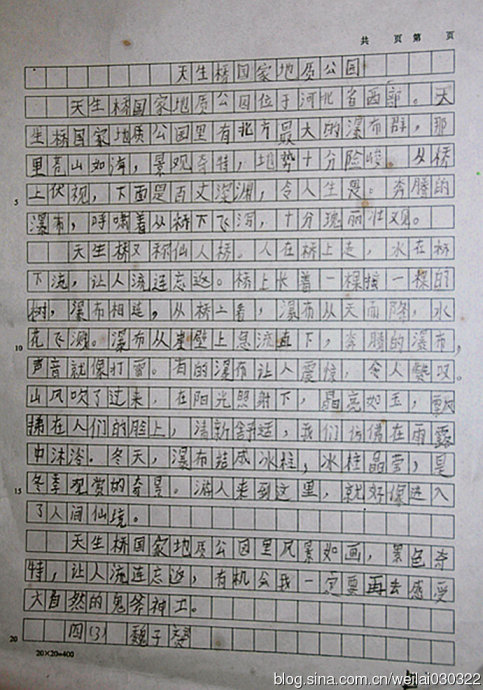 共 页 第 页
天生桥国家地质公园
天生桥国家地质公园位于河北省西部。天
生桥国家地质公园里有北方最大的瀑布群，那
里高山如海，景观奇特，地势十分险峻。从桥
5
上伏视，下面是百丈深渊，令人生畏。奔腾的
瀑布，呼啸着从桥下飞泻，十分瑰丽壮观。
天生桥又称仙人桥。人在桥上走，水在桥
下流，让人流连忘返。桥上长着一棵挨一棵的
树，瀑布相连，从桥上看，瀑布从天而降，水
10
花飞溅。瀑布从崖壁上急流直下，奔腾的瀑布，
声音就像打雷。有的瀑布让人震惊，令人赞叹。
山风吹了过来，在阳光照射下，晶亮如玉，飘
拂在人们的脸上，清新舒适，我们仿佛在雨露
中沐浴。冬天，瀑布结成冰柱，冰柱晶莹，是
15
冬季观赏的奇景。游人来到这里，就好像进入
了人间仙境。
天生桥国家地质公园里风景如画，景色奇
特，让人流连忘返，有机会我一定要再去感受
大自然的鬼斧神工。
20
四(3) 魏子
20×20=400
blog.sina.com.cn/weilai030322